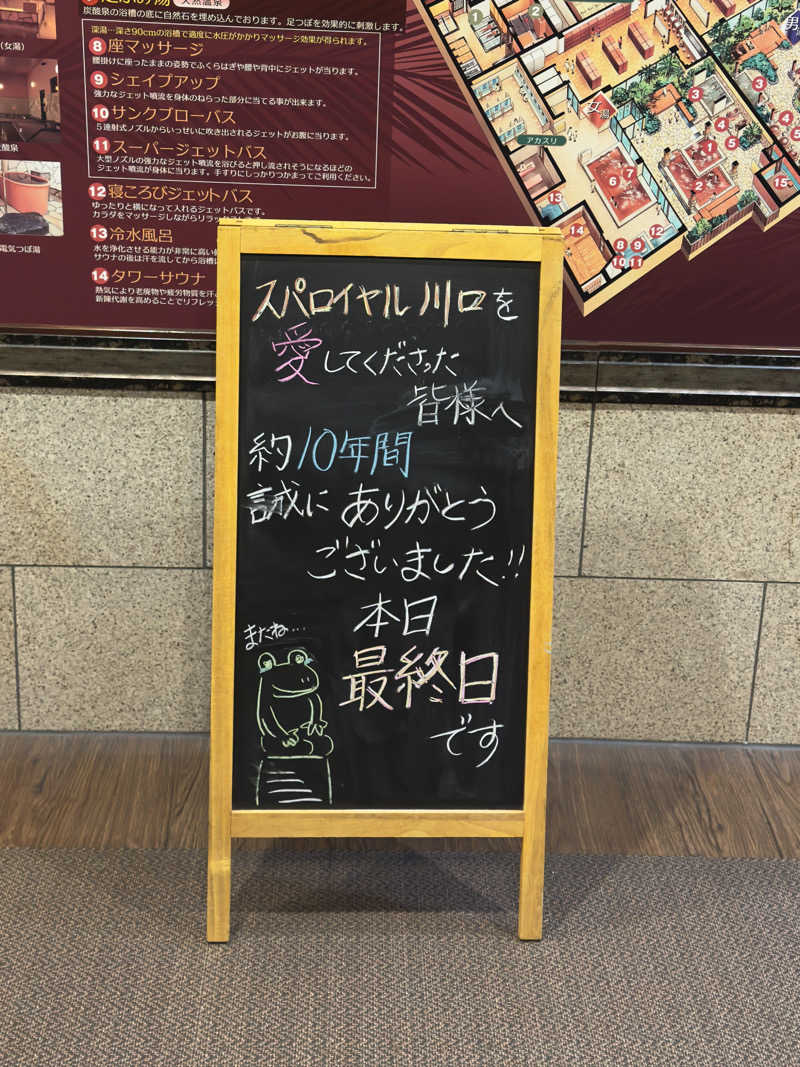 天然温泉
炭酸泉の浴槽の底に自然石を埋め込んでおります。足つぼを効果的に刺激します。
深湯…深さ90cmの浴槽で適度に水圧がかかりマッサージ効果が得られます。
8 座マッサージ
腰掛けに座ったままの姿勢でふくらはぎや腰や背中にジェットが当ります。
9 シェイプアップ
強力なジェット噴流を身体のねらった部分に当てる事が出来ます。
10 サンクブローバス
5連射式ノズルからいっせいに吹き出されるジェットがお腹に当ります。
11 スーパージェットバス
大型ノズルの強力なジェット噴流を浴びると押し流されそうになるほどの
ジェット噴流が身体に当ります。手すりにしっかりつかまってご利用ください。
12 寝ころびジェットバス
ゆったりと横になって入れるジェットバスです。
カラダをマッサージしながらリラッ
13 冷水風呂
水を浄化させる能力が非常に高い
サウナの後は汗を流してから浴槽
14 タワーサウナ
熱気により老廃物や疲労物質を汗
新陳代謝を高めることでリフレッ
(女湯)
炭酸泉
電気つぼ湯
1
2
女湯
男
アカスリ
3
3
4
4
5
5
1
2
6
7
13
14
8
9
12
10
11
15
3
4
4
5
スパロイヤル川口を
愛してくださった
皆様へ
約10年間
誠にありがとう
ございました!!
本日
最終日
です
またね…